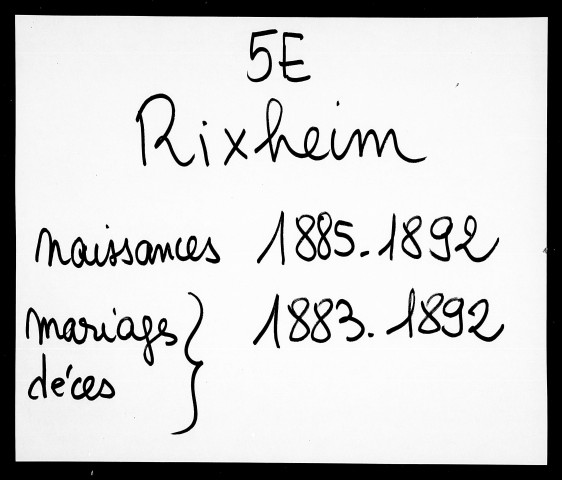 5E
Rixheim
naissances 1885.1892
mariages } 1883.1892
décès